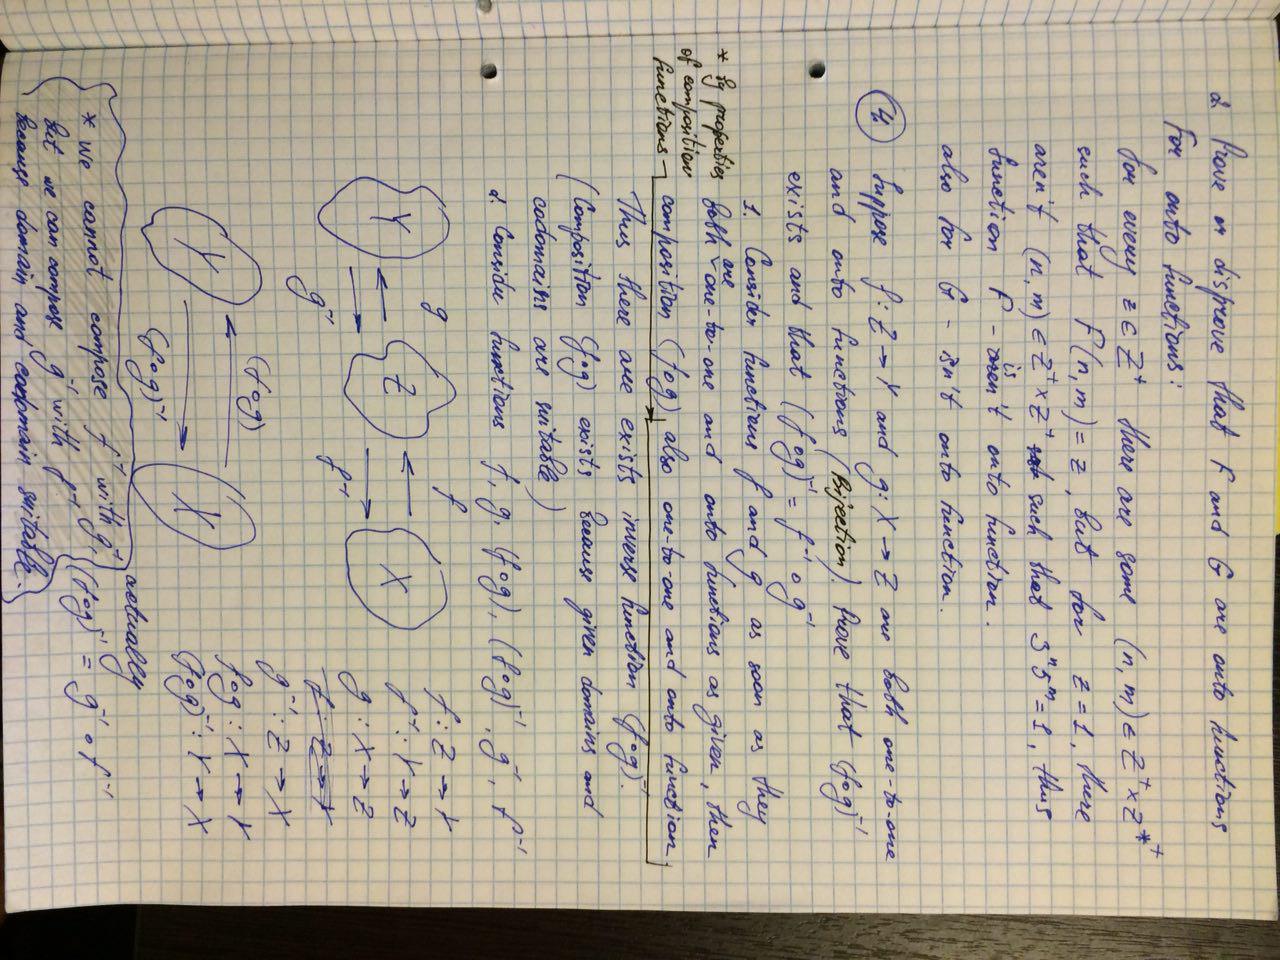 2 Prove or disprove that F and G are onto functions
For onto functions:
for every z ∈ Z⁺ there are some (n, m) ∈ Z⁺ × Z⁺
such that F(n, m) = z, but for z = 1, there
aren't (n, m) ∈ Z⁺ × Z⁺ such that 3ⁿ5ᵐ = 1, thus
function F - isn't onto function.
also for G - isn't onto function.
4.
Suppose f: Z → Y and g: X → Z are both one-to-one
and onto functions (Bijection). Prove that (f∘g)⁻¹
exists and that (f∘g)⁻¹ = f⁻¹ ∘ g⁻¹
1. Consider functions f and g as soon as they
both are one-to-one and onto functions as given, then
* By properties
of composition
functions
composition (f∘g) also one-to-one and onto function
Thus there are exists inverse function (f∘g)⁻¹.
(Composition (f∘g) exists because given domains and
codomains are suitable)
2. Consider functions f, g, (f∘g), (f∘g)⁻¹, g⁻¹, f⁻¹
Y
g
g⁻¹
Z
f
f⁻¹
X
f: Z → Y
f⁻¹: Y → Z
g: X → Z
g⁻¹: Z → X
f∘g: X → Y
(f∘g)⁻¹: Y → X
Y
(f∘g)
(f∘g)⁻¹
X
* We cannot compose f⁻¹ with g⁻¹, actually
but we can compose g⁻¹ with f⁻¹ (f∘g)⁻¹ = g⁻¹ ∘ f⁻¹
because domain and codomain suitable.